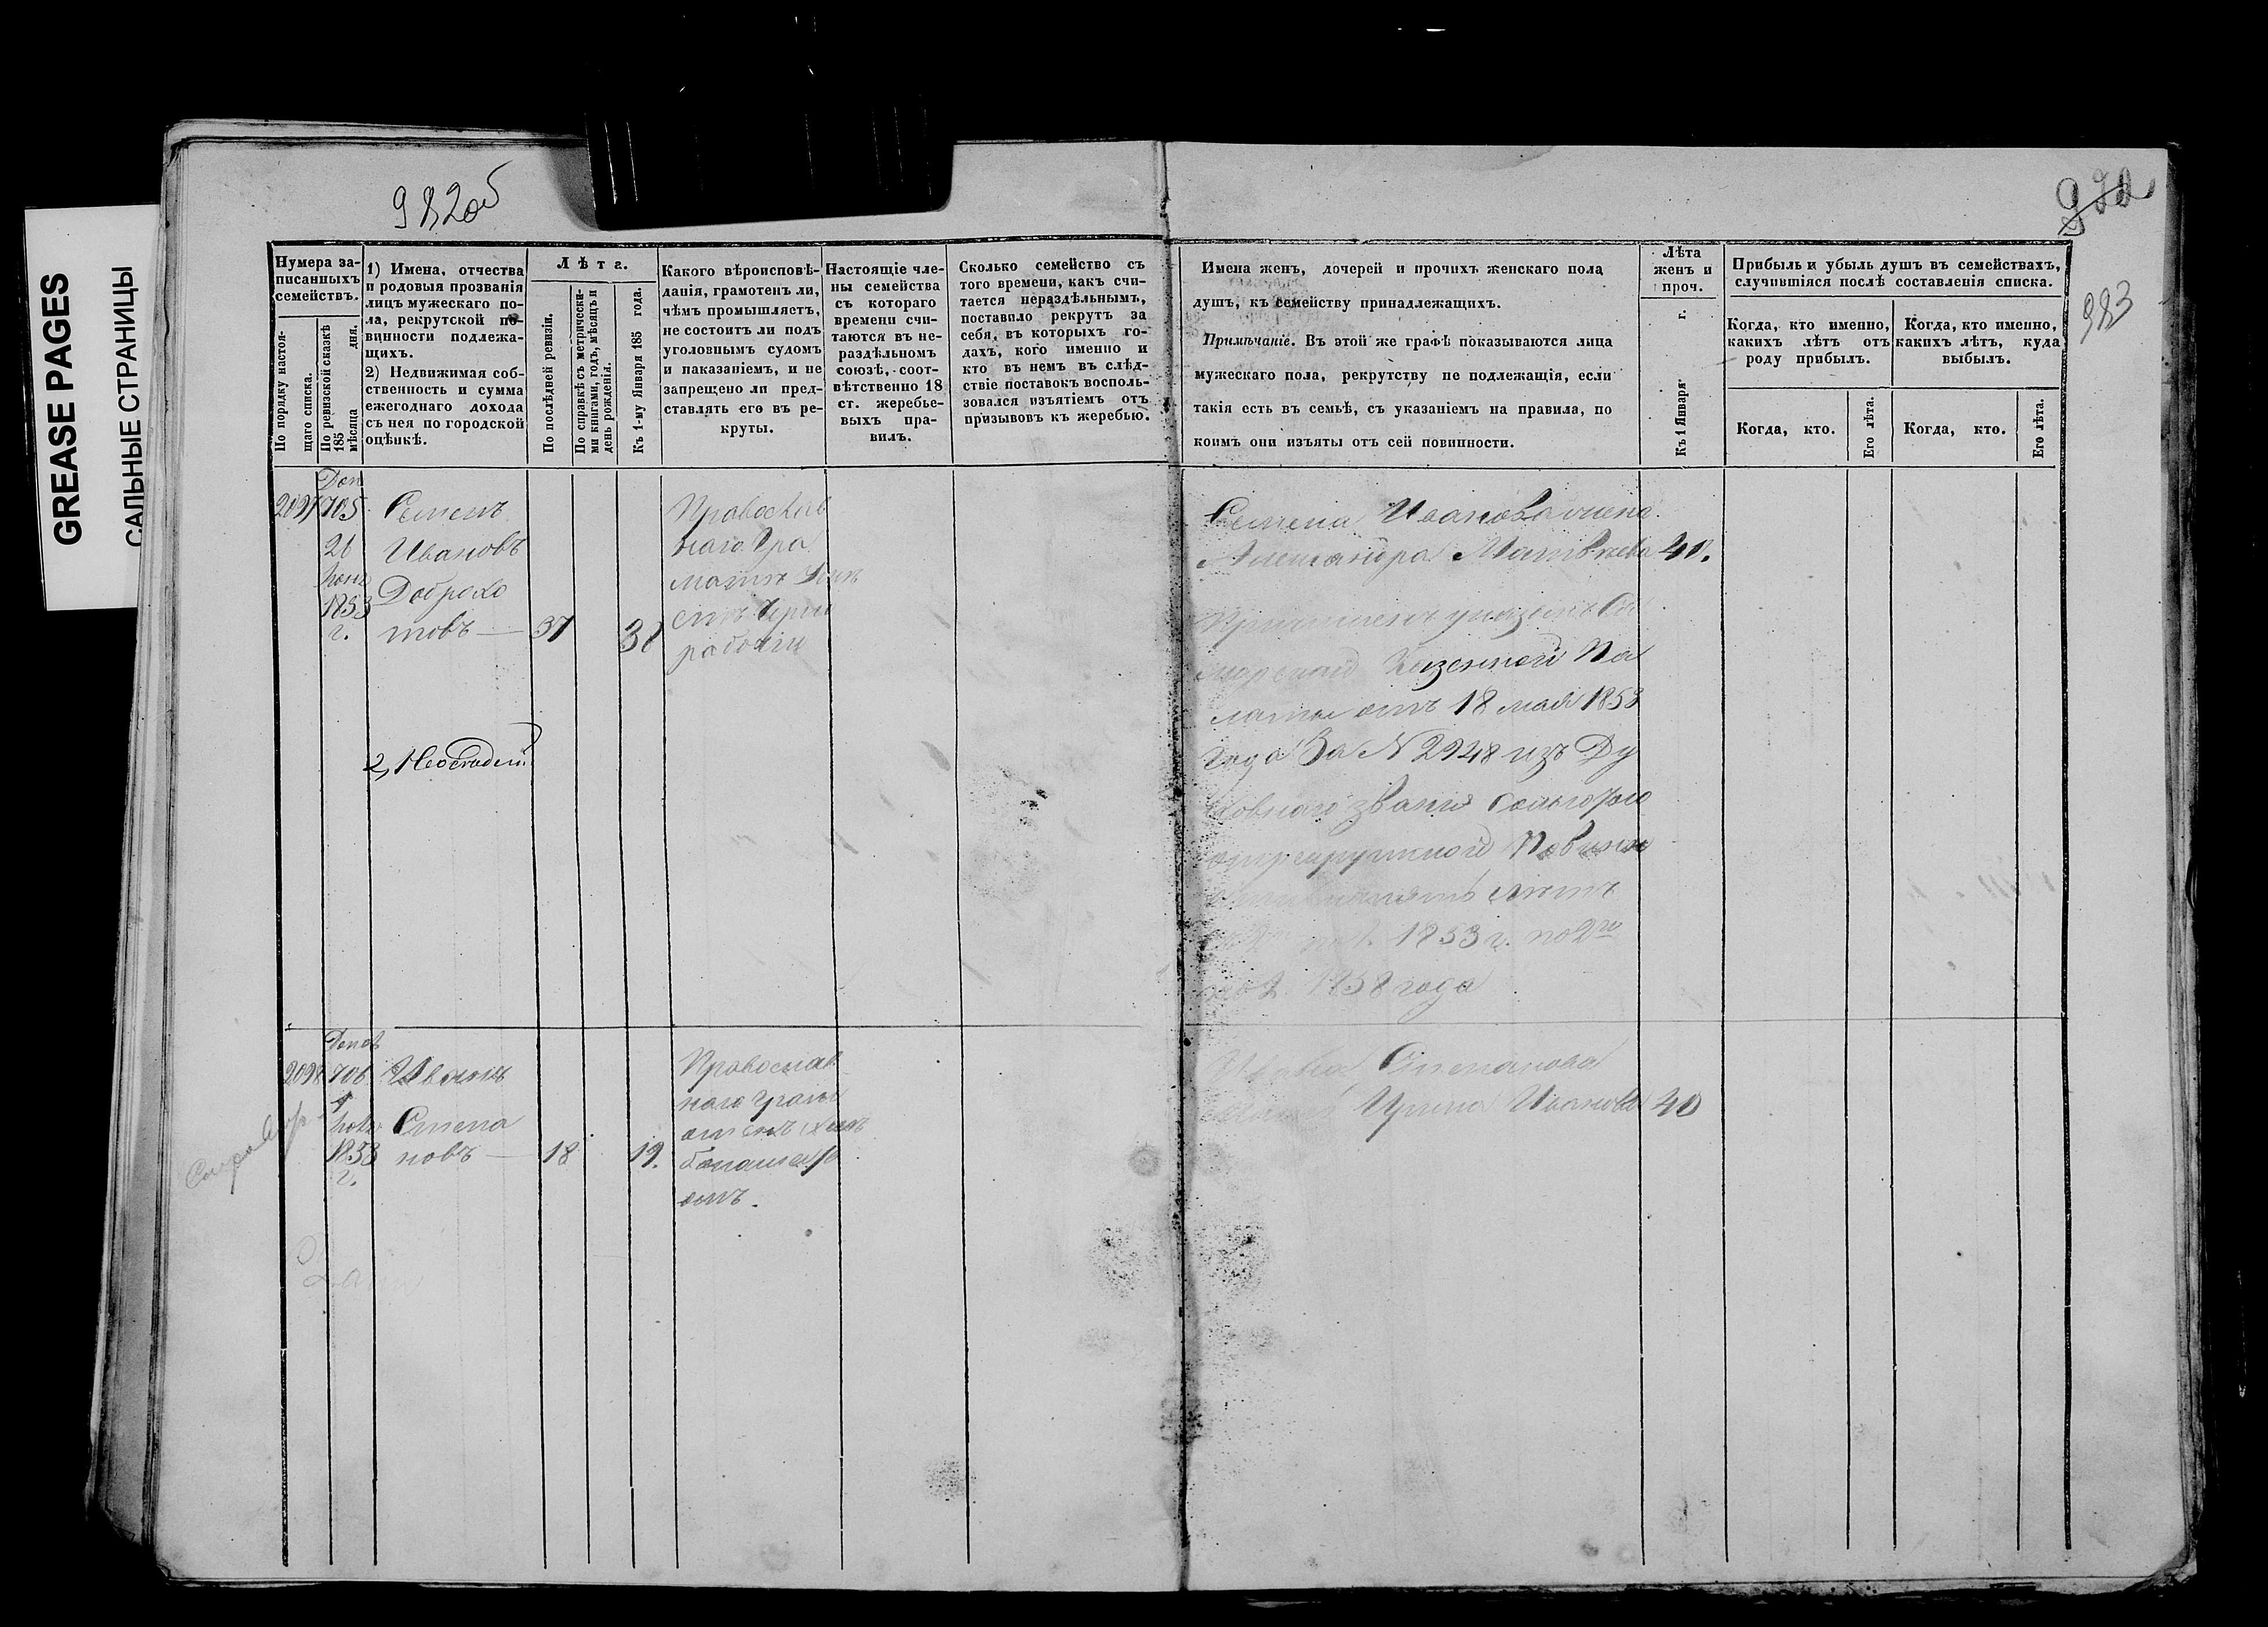 GREASE PAGES
САЛЬНЫЕ СТРАНИЦЫ
982об
983
Нумера за-
писанныхъ
семействъ.
По порядку настоя-
щаго списка.
По ревизской сказкѣ
185
мѣсяца дня.
1) Имена, отчества
и родовыя прозванія
лицъ мужескаго по-
ла, рекрутской по-
винности подлежа-
щихъ.
2) Недвижимая соб-
ственность и сумма
ежегоднаго дохода
съ нея по городской
оцѣнкѣ.
Лѣта.
По послѣдней ревизіи.
По справкѣ съ метрически-
ми книгами, годъ, мѣсяцъ и
день рожденія.
Къ 1-му Января 185 года.
Какого вѣроисповѣ-
данія, грамотенъ ли,
чѣмъ промышляетъ,
не состоитъ ли подъ
уголовнымъ судомъ
и наказаніемъ, и не
запрещено ли пред-
ставлять его въ ре-
круты.
Настоящіе чле-
ны семейства
съ котораго
времени счи-
таются въ не-
раздѣльномъ
союзѣ, соот-
вѣтственно 18
ст. жеребье-
выхъ пра-
вилъ.
Сколько семейство съ
того времени, какъ счи-
тается нераздѣльнымъ,
поставило рекрутъ за
себя, въ которыхъ го-
дахъ, кого именно и
кто въ немъ въ слѣд-
ствіе поставокъ восполь-
зовался изъятіемъ отъ
призывовъ къ жеребью.
Имена женъ, дочерей и прочихъ женскаго пола
душъ, къ семейству принадлежащихъ.
Примѣчаніе. Въ этой же графѣ показываются лица
мужескаго пола, рекрутству не подлежащія, если
такія есть въ семьѣ, съ указаніемъ на правила, по
коимъ они изъяты отъ сей повинности.
Лѣта
женъ и
проч.
Къ 1 Января г.
Прибыль и убыль душъ въ семействахъ,
случившіяся послѣ составленія списка.
Когда, кто именно,
какихъ лѣтъ отъ
роду прибылъ.
Когда, кто именно,
какихъ лѣтъ, куда
выбылъ.
Когда, кто.
Его лѣта.
Когда, кто.
Его лѣта.
Доп
2097 705
26
1853
г.
Семенъ
Ивановъ
Доброхо
товъ — 37 38
Православ
наго Гра
матѣ
черн
работы
2,
Семена Иванова жена
Александра Матвѣева 40.
Причисленъ указомъ Са
марской Казенной Па
латы отъ 18 мая 1853
года За N 2948 изъ Ду
ховнаго званія
рекрутской Повинно
лѣтъ
1853 г. по 2го
1858 года
2098 706
1853
г.
Иванъ
Степа
новъ — 18 19.
Православ
наго грам
отенъ
омъ.
Ивана Степанова
Мать Ирина Иванова 40